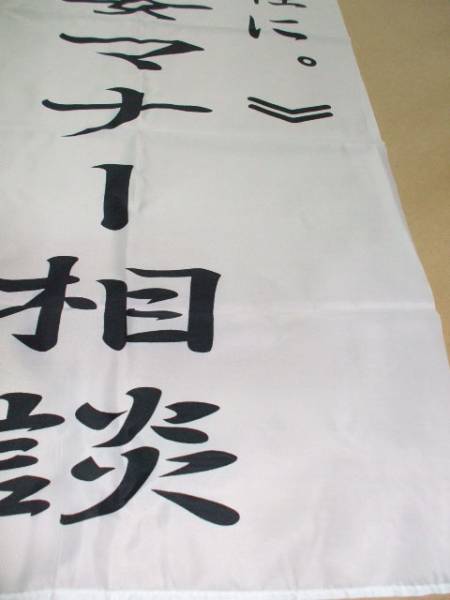 に。》
マナー相談